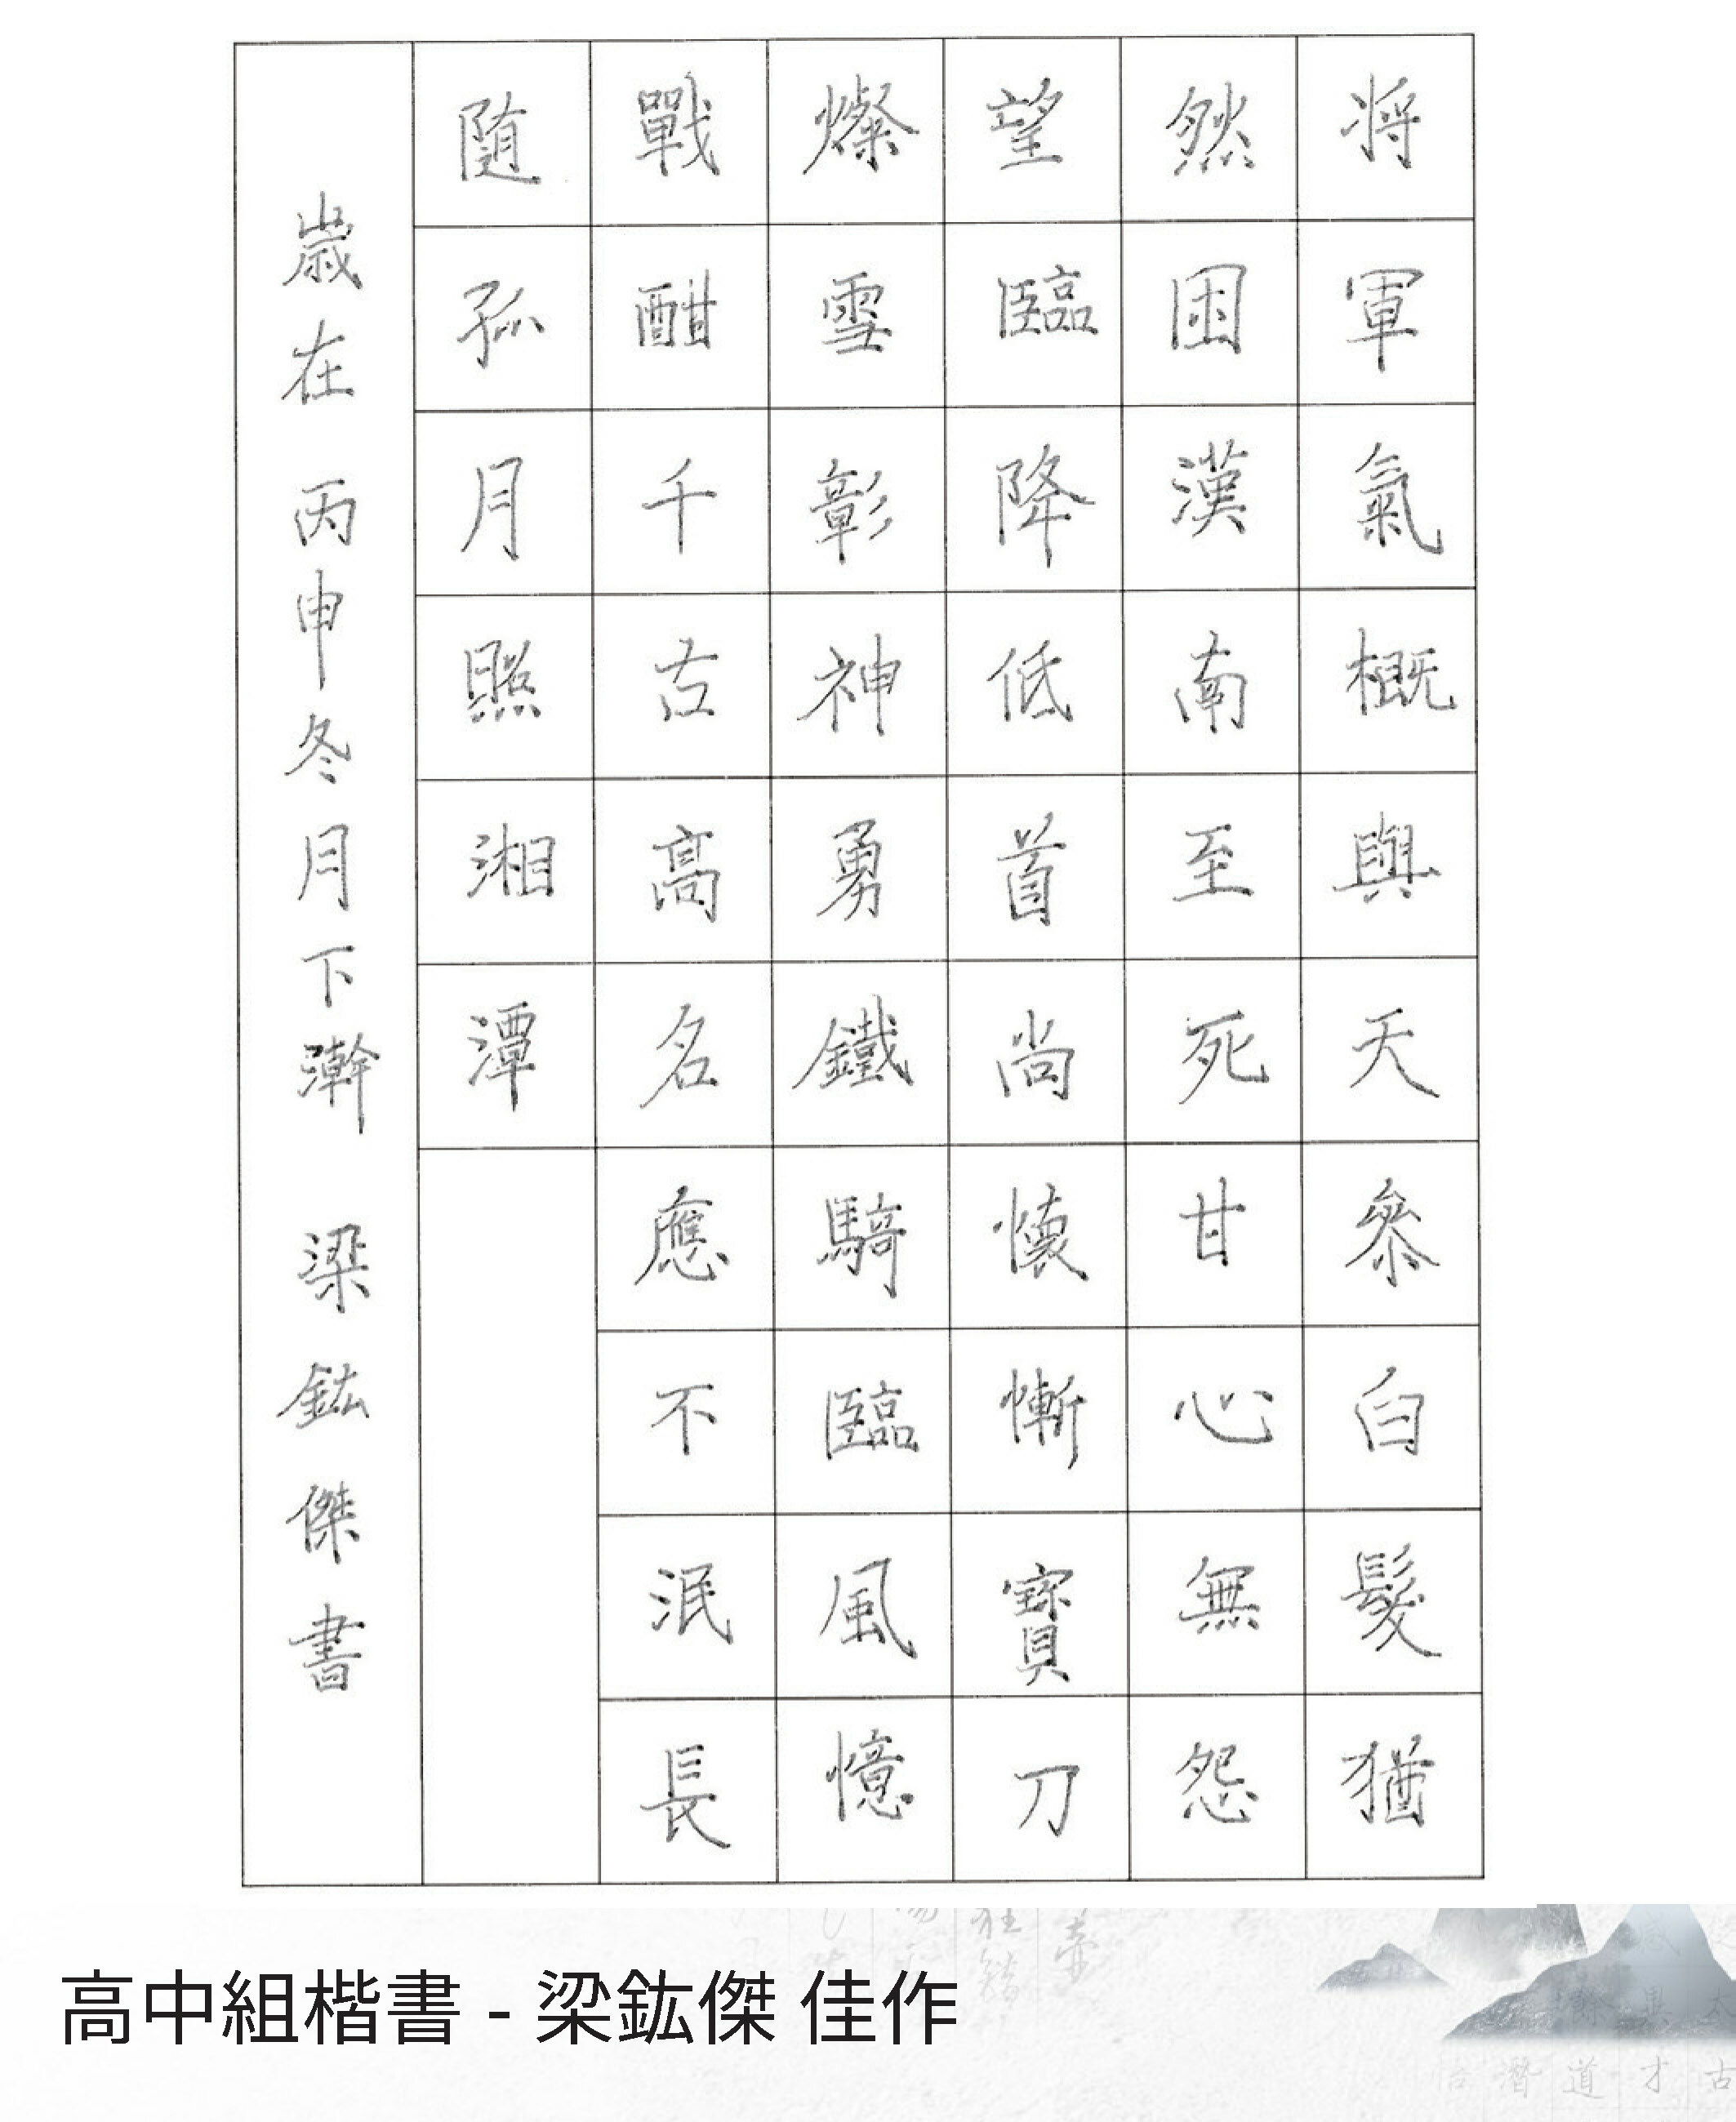 将軍氣概與天參白髮猶
然困漢南至死甘心無怨
望臨降低首尚懷慚寶刀
燦雪彰神勇鐵騎臨風憶
戰酣千古高名應不泯長
随孤月照湘潭
歲在丙申冬月下澣 梁鈜傑書
高中組楷書 - 梁鈜傑 佳作